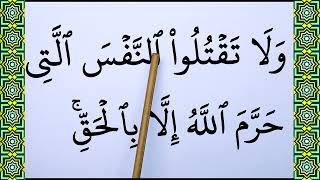 وَلَا تَقْتُلُوا۟ ٱلنَّفْسَ ٱلَّتِى
حَرَّمَ ٱللَّهُ إِلَّا بِٱلْحَقِّۚ